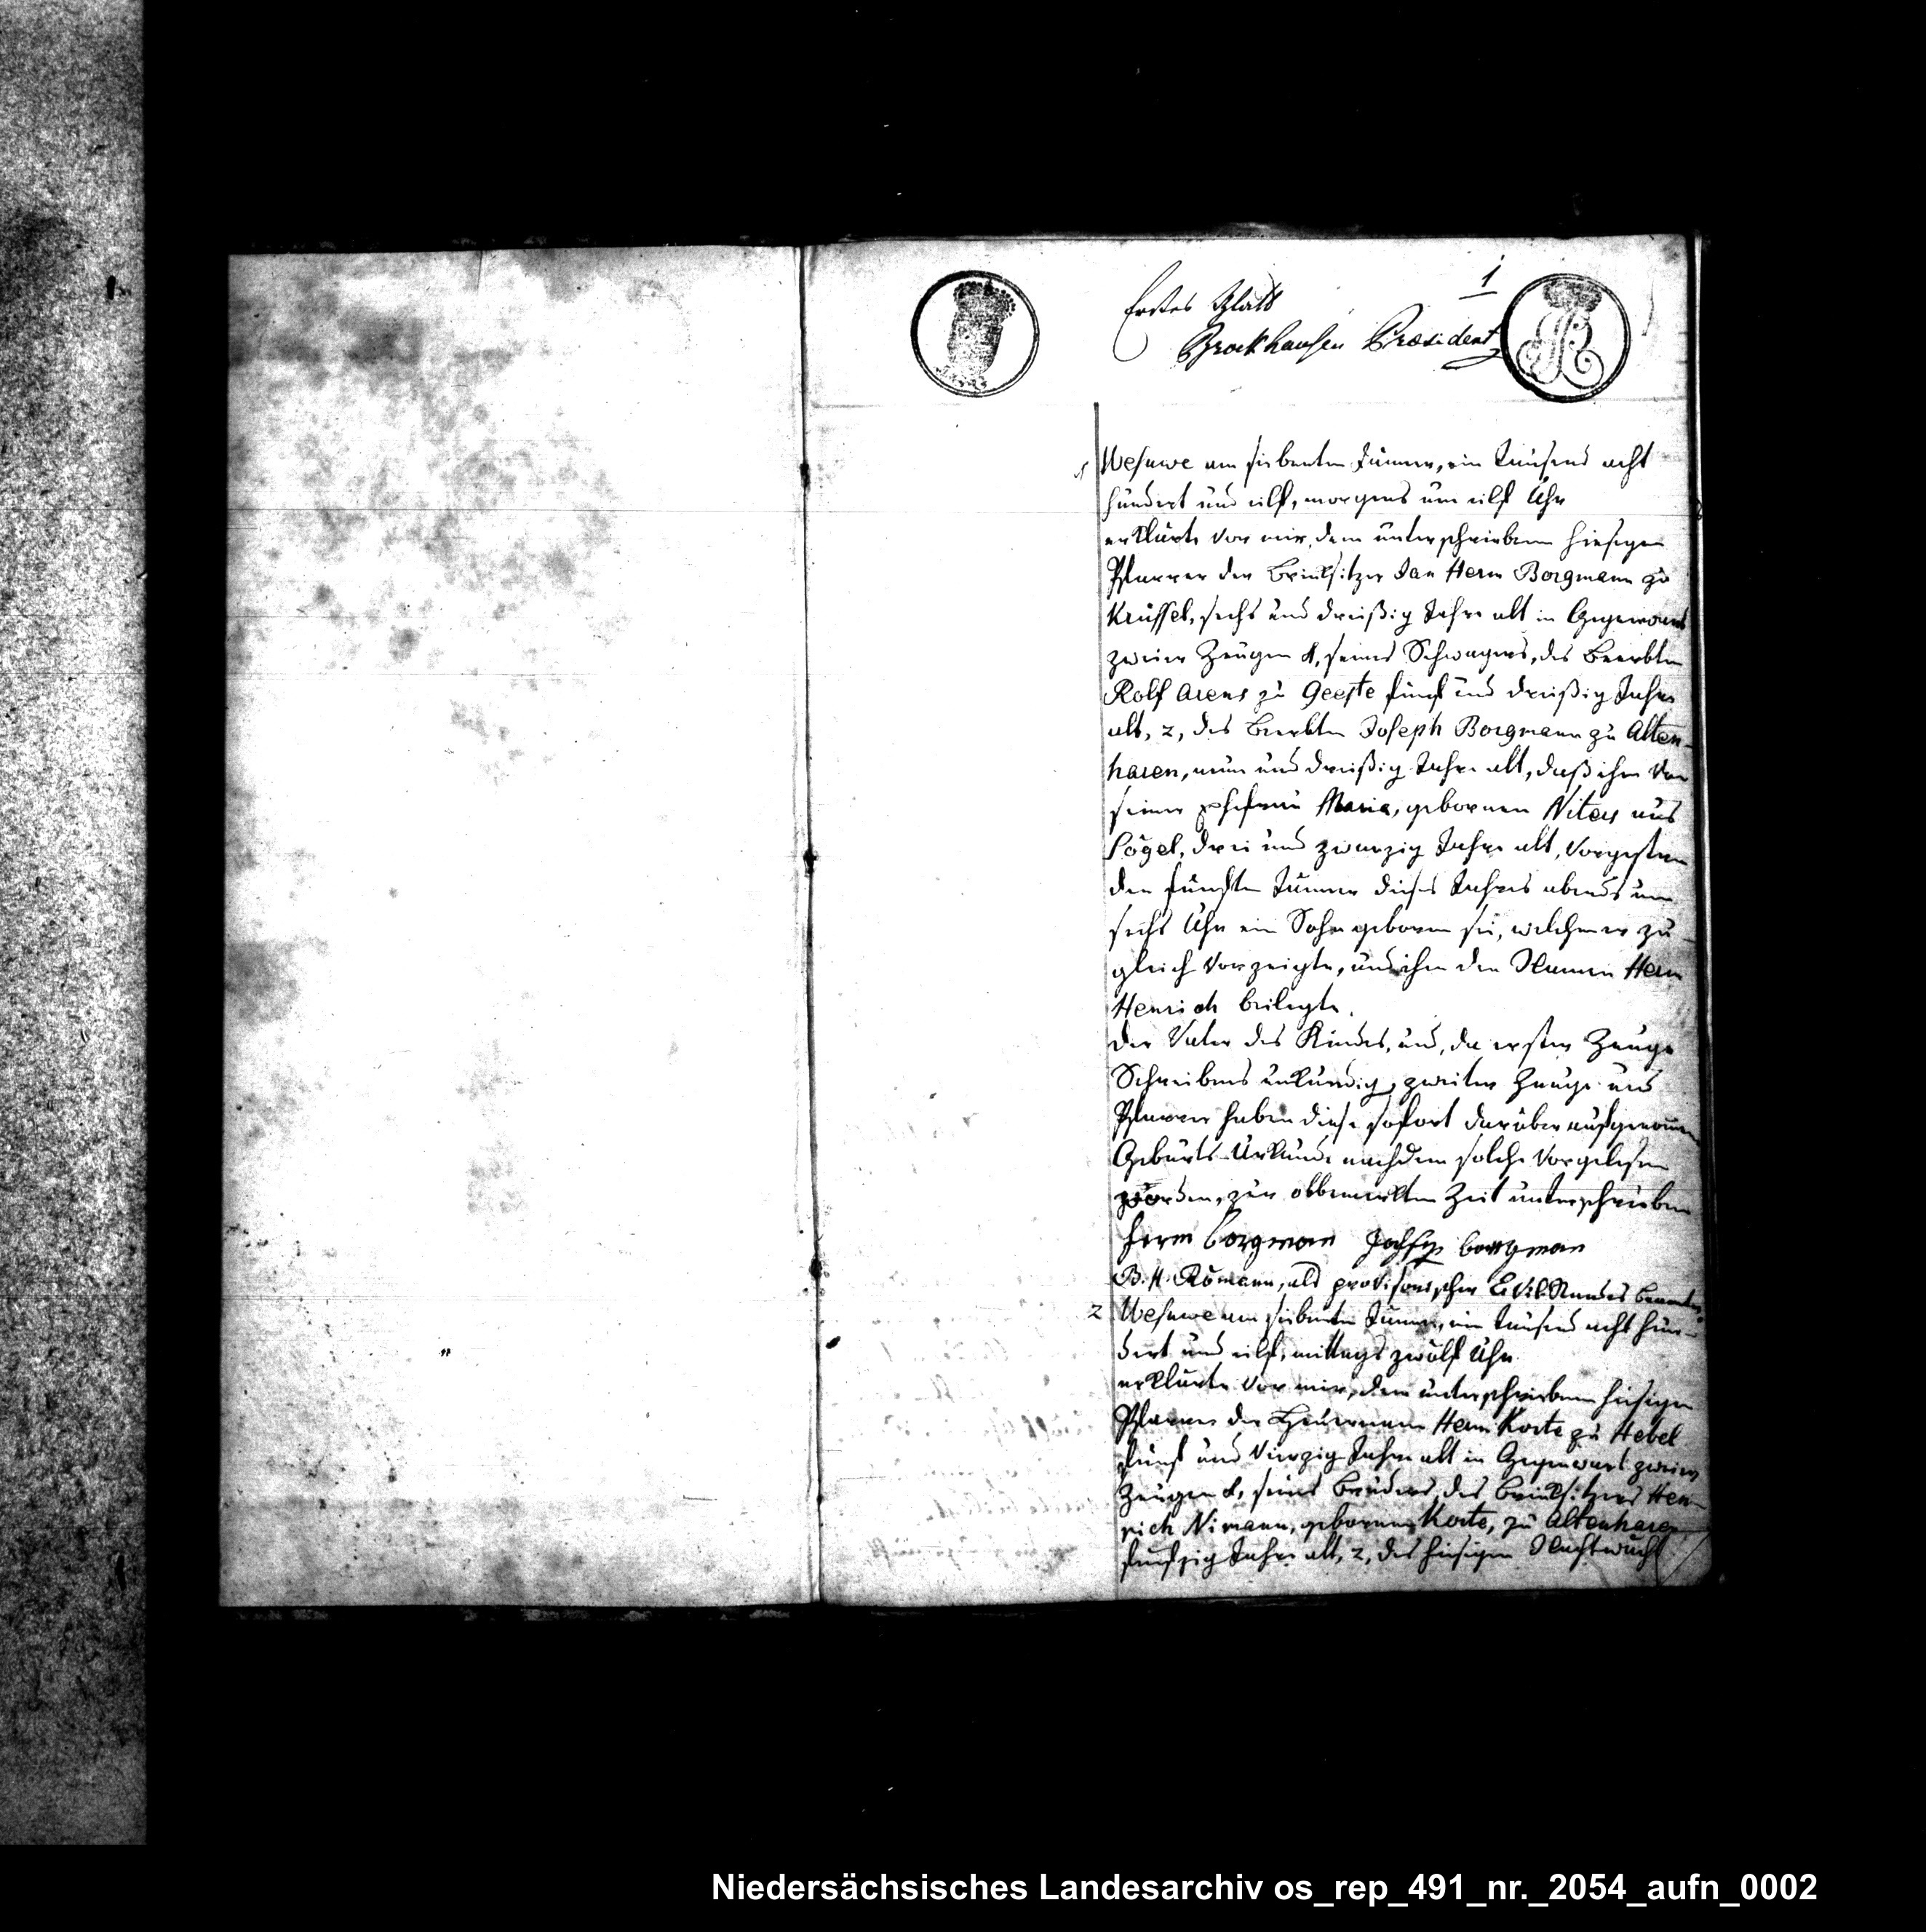 1
Erstes Blatt
Brockhausen Praesident
1 Wesuwe am siebenten Jänner, ein tausend acht
hundert und eilf, morgens um eilf Uhr
erklärte vor mir, dem unterschriebenen hiesigen
Pfarrer der Brinksitzer Jan Herm Borgmann zu
Krüssel, sechs und dreißig Jahre alt in Gegenwart
zweier Zeugen 1, seines Schwagers, des Beerbten
Rolf Arens zu Geeste fünf und dreißig Jahre
alt, 2, des Beerbten Joseph Borgmann zu Alten-
haren, neun und dreißig Jahre alt, daß ihm von
seiner Ehefrau Maria, gebornen Niters aus
Sögel, drei und zwanzig Jahre alt, vorgestern
den fünften Jänner dieses Jahres abends um
sechs Uhr ein Sohn geboren sei, welchen er zu-
gleich vorzeigte, und ihm den Namen Herm
Henrich beilegte.
Der Vater des Kindes, und, da erster Zeuge
Schreibens unkundig, zweiter Zeuge und
Pfarrer haben diese sofort darüber aufgenommene
Geburts-Urkunde nachdem solche vorgelesen
worden, zur obbemerkten Zeit unterschrieben
Herm borgman Johsep borgman
B. H. Römann, als provisorischer Civil-Standes Beamter
2 Wesuwe am siebenten Jänner, ein tausend acht hun-
dert und eilf, mittags zwölf Uhr
erklärte vor mir, dem unterschriebenen hiesigen
Pfarrer der Heuermann Herm Korte zu Hebel
fünf und vierzig Jahre alt in Gegenwart zweier
Zeugen 1, seines Bruders, des Brinksitzers Hen-
rich Nimann, gebornen Korte, zu Altenharen
fünfzig Jahre alt, 2, des hiesigen Nachtwäch
Niedersächsisches Landesarchiv os_rep_491_nr._2054_aufn_0002